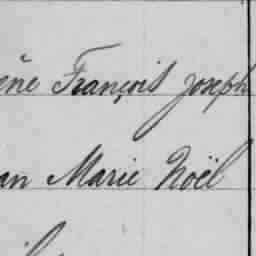 ène François Joseph
an Marie Noël